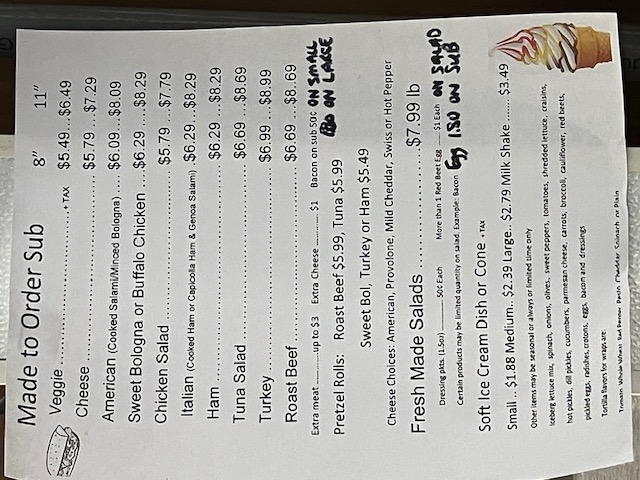 Made to Order Sub 8" 11"
Veggie + TAX $5.49 $6.49
Cheese $5.79 $7.29
American (Cooked Salami/Minced Bologna) $6.09 $8.09
Sweet Bologna or Buffalo Chicken $6.29 $8.29
Chicken Salad $5.79 $7.79
Italian (Cooked Ham or Capicolla Ham & Genoa Salami) $6.29 $8.29
Ham $6.29 $8.29
Tuna Salad $6.69 $8.69
Turkey $6.99 $8.99
Roast Beef $6.69 $8.69
Extra meat up to $3 Extra Cheese $1 Bacon on sub 50¢ ON SMALL
ON LARGE
Pretzel Rolls: Roast Beef $5.99, Tuna $5.99
Sweet Bol, Turkey or Ham $5.49
Cheese Choices: American, Provolone, Mild Cheddar, Swiss or Hot Pepper
Fresh Made Salads $7.99 lb
Dressing pkts. (1.5oz) 50¢ Each More than 1 Red Beet Egg $1 Each ON SALAD
Certain products may be limited quantity on salad. Example: Bacon Egg 1.50 ON SUB
Soft Ice Cream Dish or Cone + TAX
Small .. $1.88 Medium.. $2.39 Large.. $2.79 Milk Shake ...... $3.49
Other items may be seasonal or always or limited time only
Iceberg lettuce mix, spinach, onions, olives, sweet peppers, tomatoes, shredded lettuce, craisins,
hot pickles, dill pickles, cucumbers, parmesan cheese, carrots, broccoli, cauliflower, red beets,
pickled eggs, radishes, croutons, eggs, bacon and dressings
Tortilla flavors for wraps are:
Tomato, Whole Wheat, Red Pepper Pesto, Cheddar, Spinach or Plain